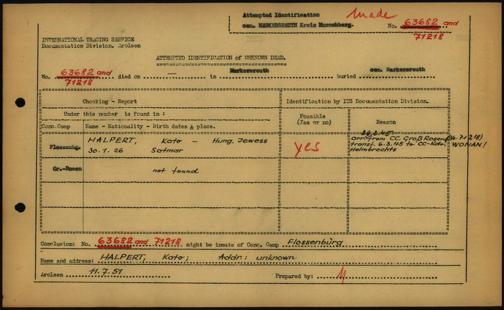 Attempted Identification made
cem. MARKERSREUTH Kreis Muenchberg. No. 63682 and
71218
INTERNATIONAL TRACING SERVICE
Documentation Division, Arolsen
ATTEMPTED IDENTIFICATION of UNKNOWN DEAD.
No. 63682 and 71218 died on — in Markersreuth buried cem. Markersreuth
Checking - Report
Identification by ITS Documentation Division.
Under this number is found in:
Possible (Yes or no)
Reason
Conc. Camp Name - Nationality - Birth dates & place.
Flossenbg. HALPERT, Kato - Hung. Jewess
30.1.26 Satmar
yes
arr. from CC. Groß Rosen (No 71218)
transf. 6.3.45 to CC-Kdo. WOMAN!
Helmbrechts
Gr.-Rosen not found
Conclusion: No. 63682 and 71218 might be inmate of Conc. Camp Flossenbürg
Name and address: HALPERT, Kato; Addr: unknown
Arolsen 11.7.51 Prepared by: